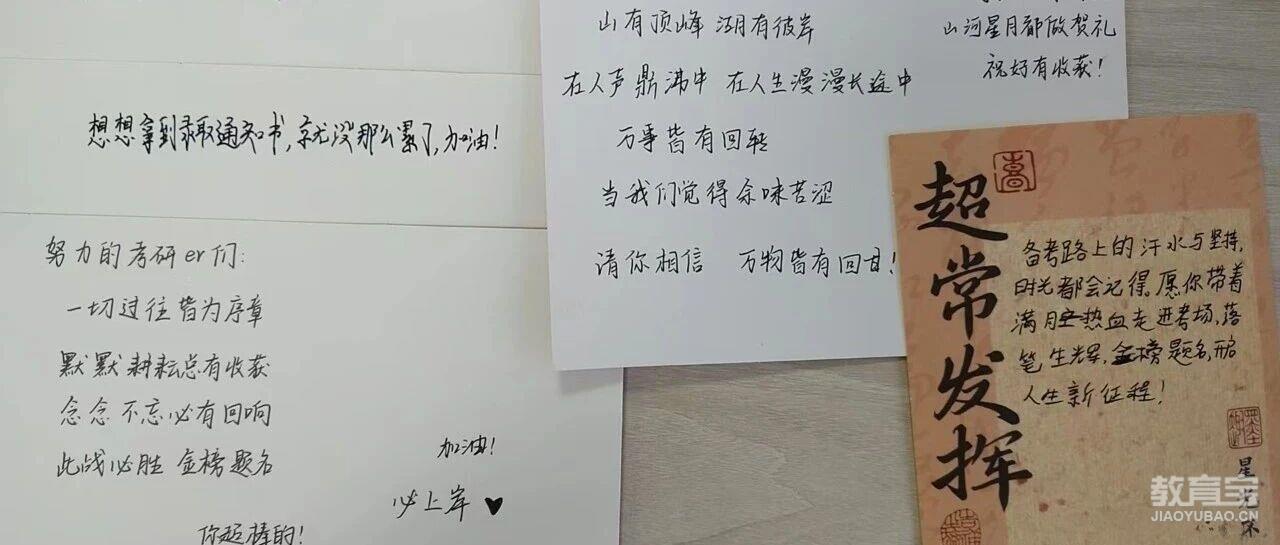 想想拿到录取通知书,就没那么累了,加油!
努力的考研er们:
一切过往皆为序章
默默耕耘总有收获
念念不忘必有回响
此战必胜 金榜题名
加油!
必上岸♥
你超棒的!
山有顶峰 湖有彼岸
在人声鼎沸中 在人生漫漫长途中
万事皆有回转
当我们觉得余味苦涩
请你相信 万物皆有回甘!
山河星月都做贺礼
祝好有收获!
超常发挥
备考路上的汗水与坚持,
时光都会记得,愿你带着
满腔热血走进考场,落
笔生辉,金榜题名,开启
人生新征程!
教育宝
JIAOYUBAO.CN